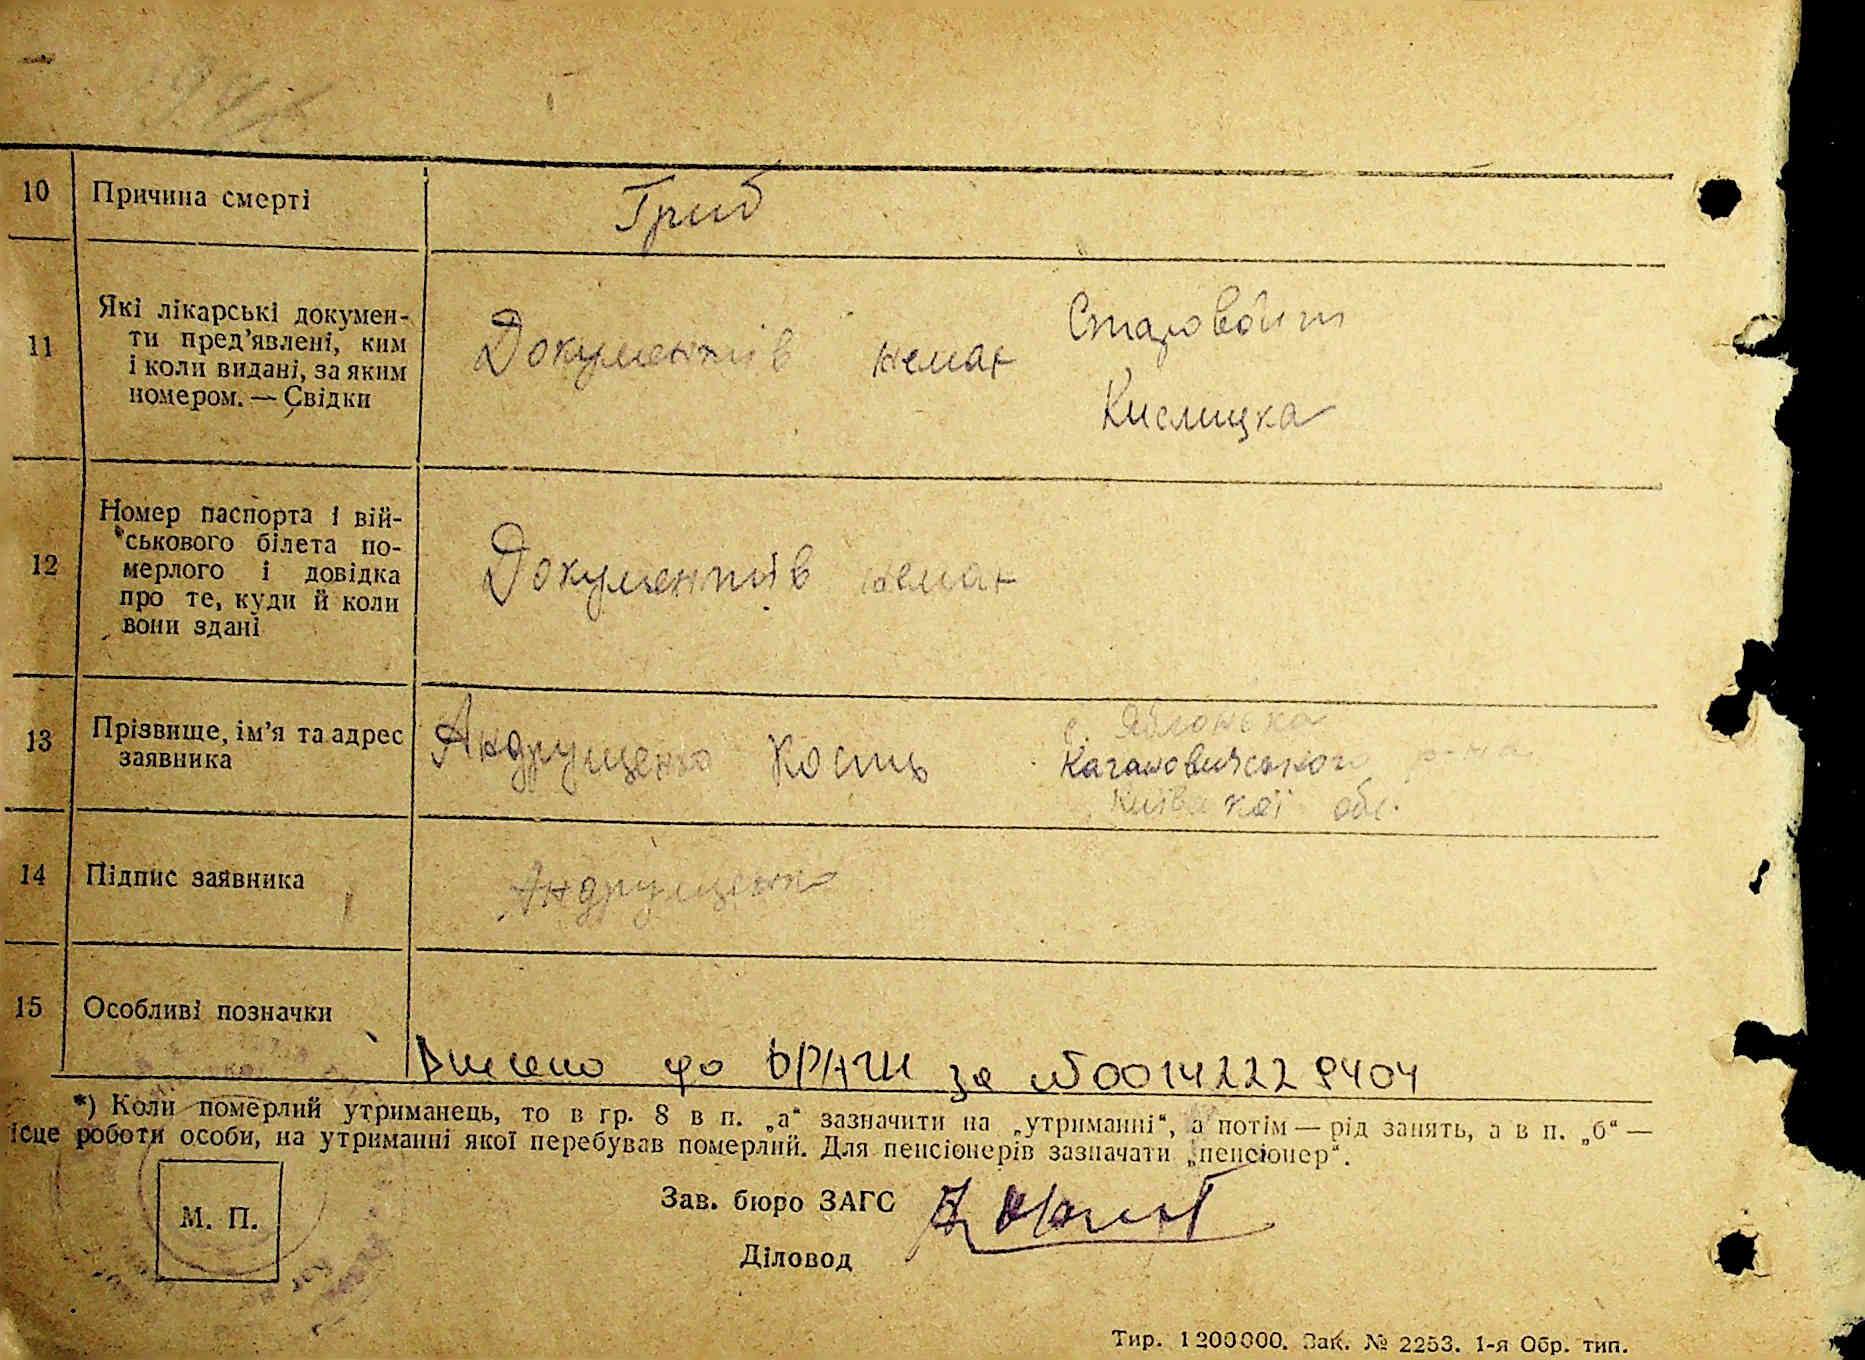 10
Причина смерті
Гриб
11
Які лікарські докумен-
ти пред'явлені, ким
і коли видані, за яким
номером. — Свідки
Документів немає
Старовойт
Кислицка
12
Номер паспорта і вій-
ськового білета по-
мерлого і довідка
про те, куди й коли
вони здані
Документів немає
13
Прізвище, ім'я та адрес
заявника
Андрущенко Кость
с. Яблонька
Кагановичського р-на
Київської обл.
14
Підпис заявника
Андрущенко
15
Особливі позначки
Внесено до ДРАЦС за №00142229404
*) Коли померлий утриманець, то в гр. 8 в п. „а“ зазначити на „утриманні“, а потім — рід занять, а в п. „б“ —
ісце роботи особи, на утриманні якої перебував померлий. Для пенсіонерів зазначати „пенсіонер“.
М. П.
Зав. бюро ЗАГС
Діловод
Тир. 1200000. Зак. № 2253. 1-я Обр. тип.